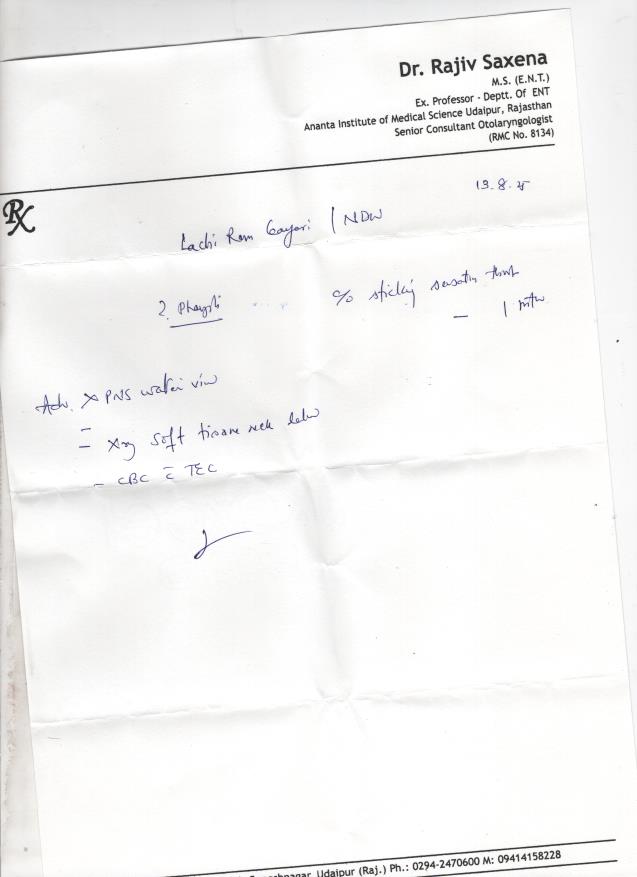 Dr. Rajiv Saxena
M.S. (E.N.T.)
Ex. Professor - Deptt. Of ENT
Ananta Institute of Medical Science Udaipur, Rajasthan
Senior Consultant Otolaryngologist
(RMC No. 8134)
Rx
13.8.25
Lachi Ram Gayari / NDW
c/o sticking sensatn throt
- 1 mth
Adv. X PNS water view
- Xray soft tissue neck
- CBC c̄ TEC
Udaipur (Raj.) Ph.: 0294-2470600 M: 09414158228